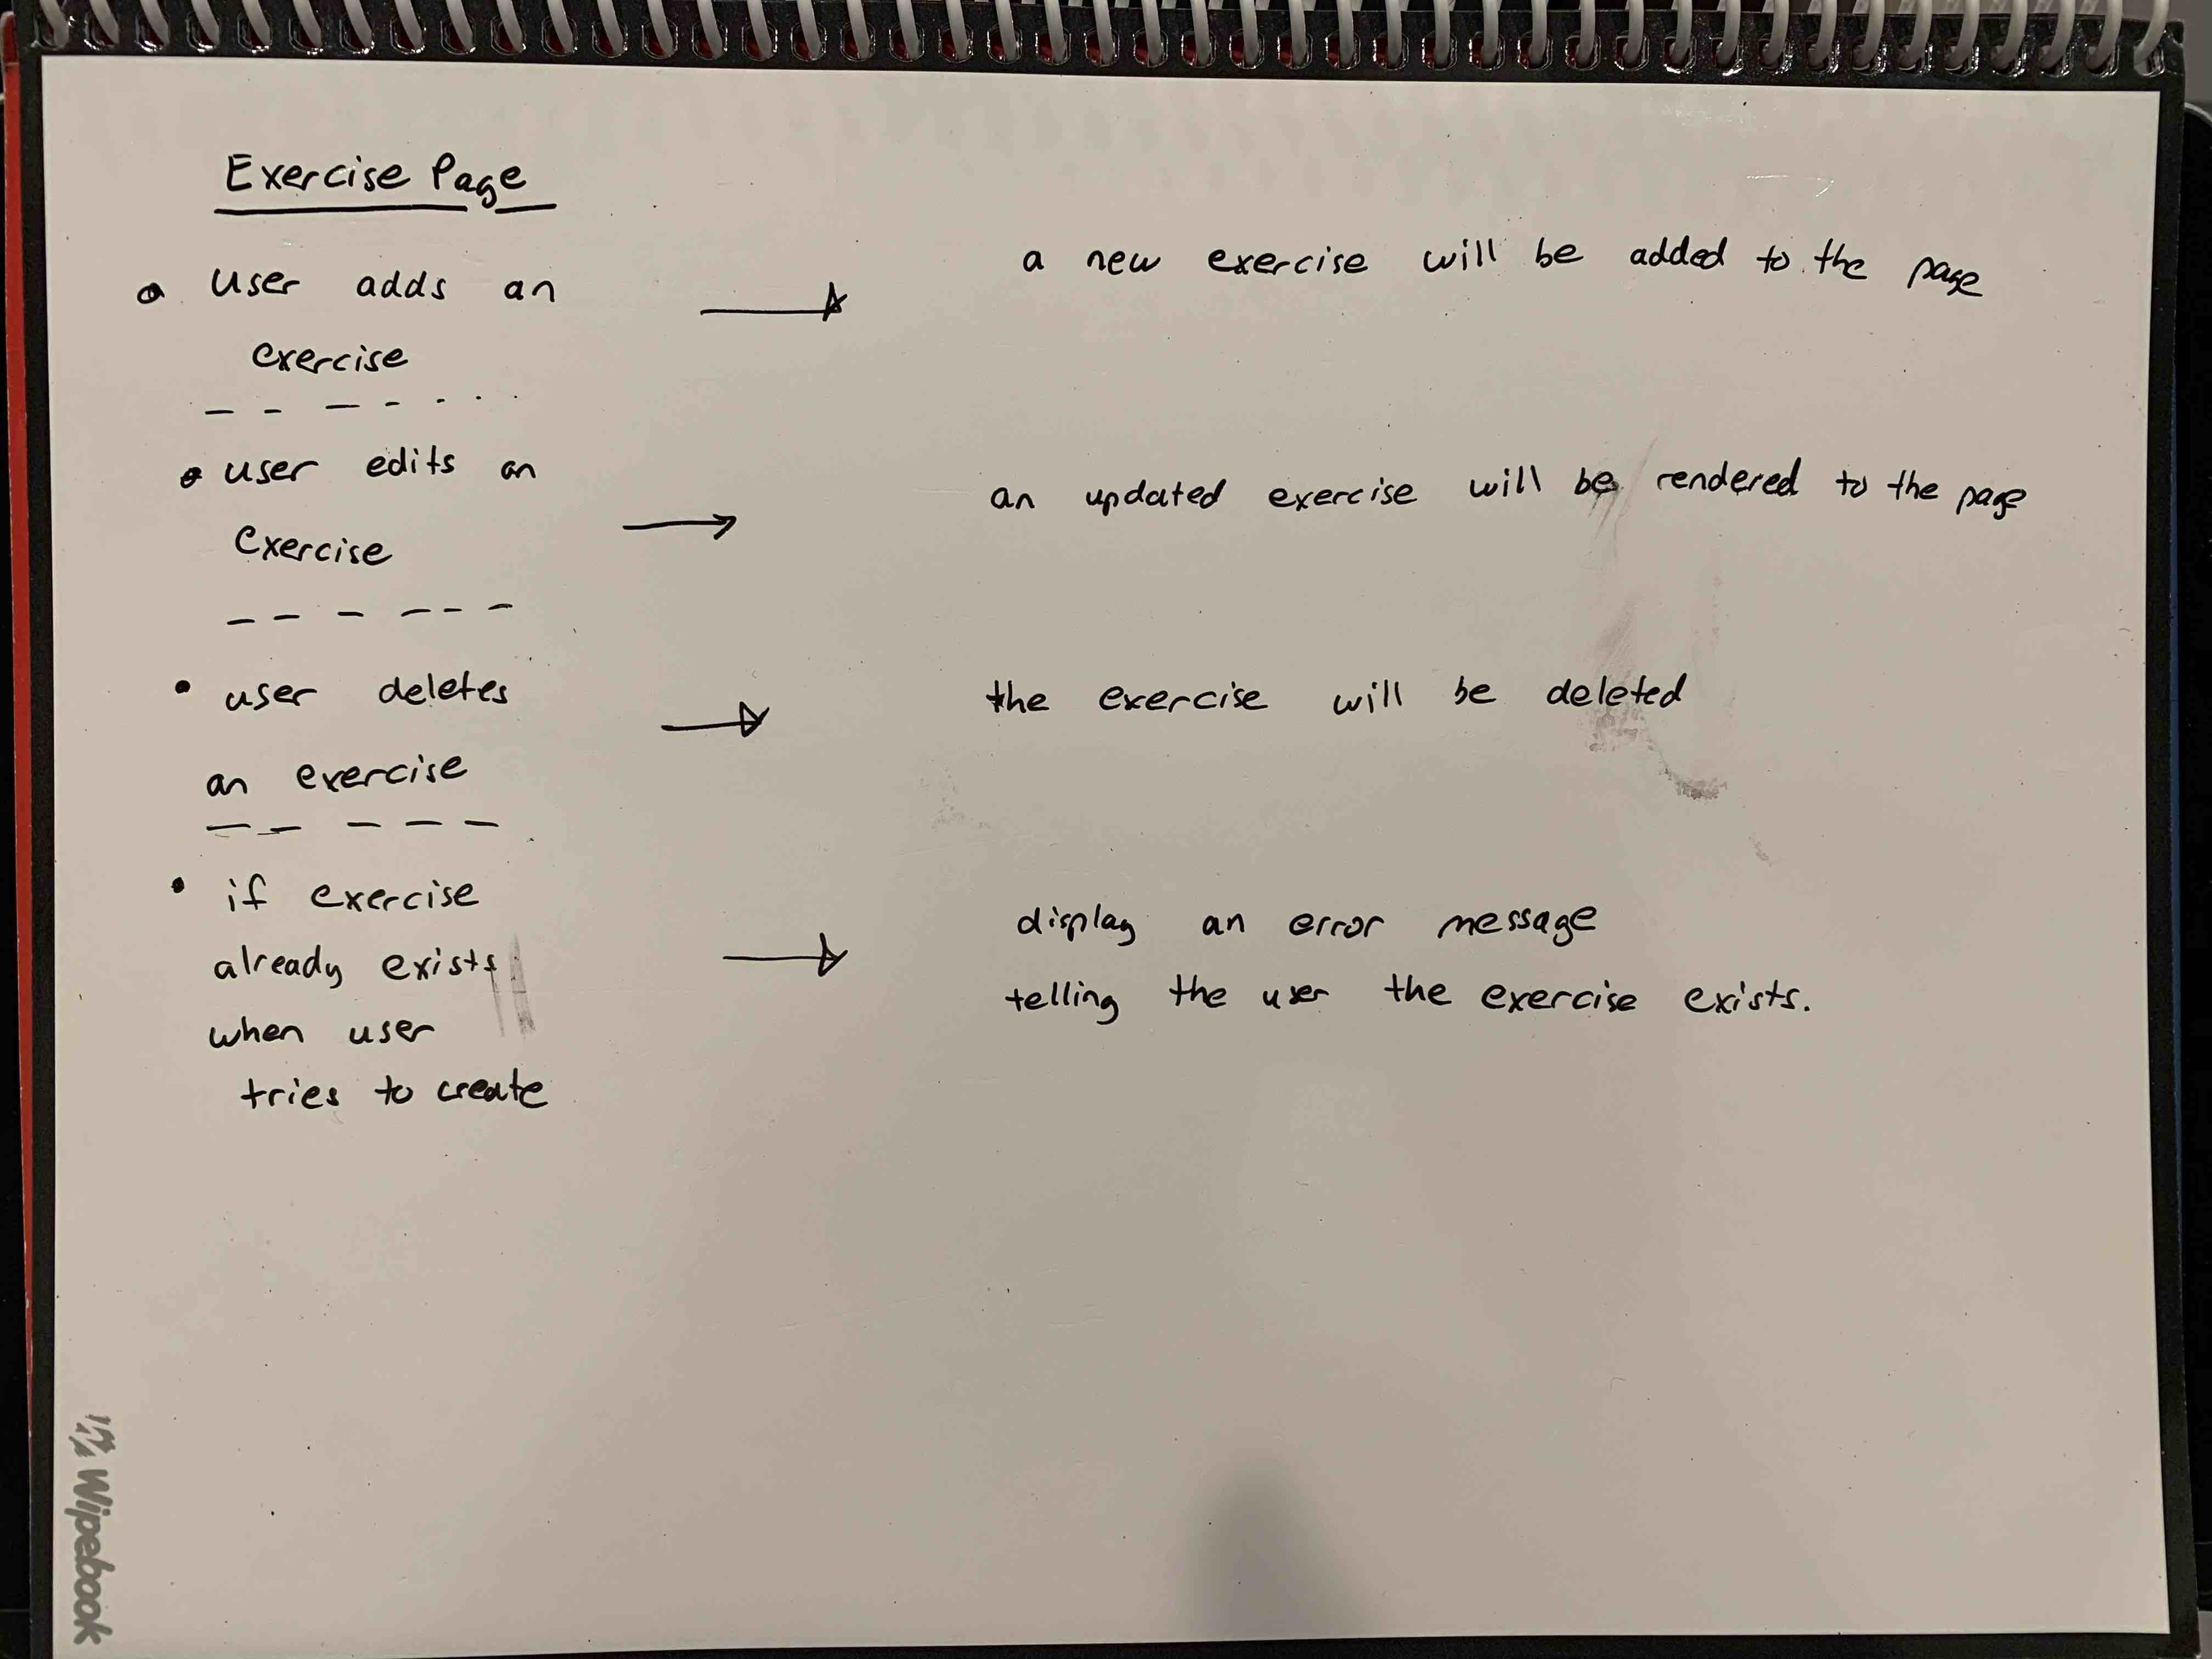 Exercise Page
• user adds an
exercise
a new exercise will be added to the page
• user edits an
Exercise
an updated exercise will be rendered to the page
• user deletes
an exercise
the exercise will be deleted
• if exercise
already exists
when user
tries to create
display an error message
telling the user the exercise exists.
Wipebook